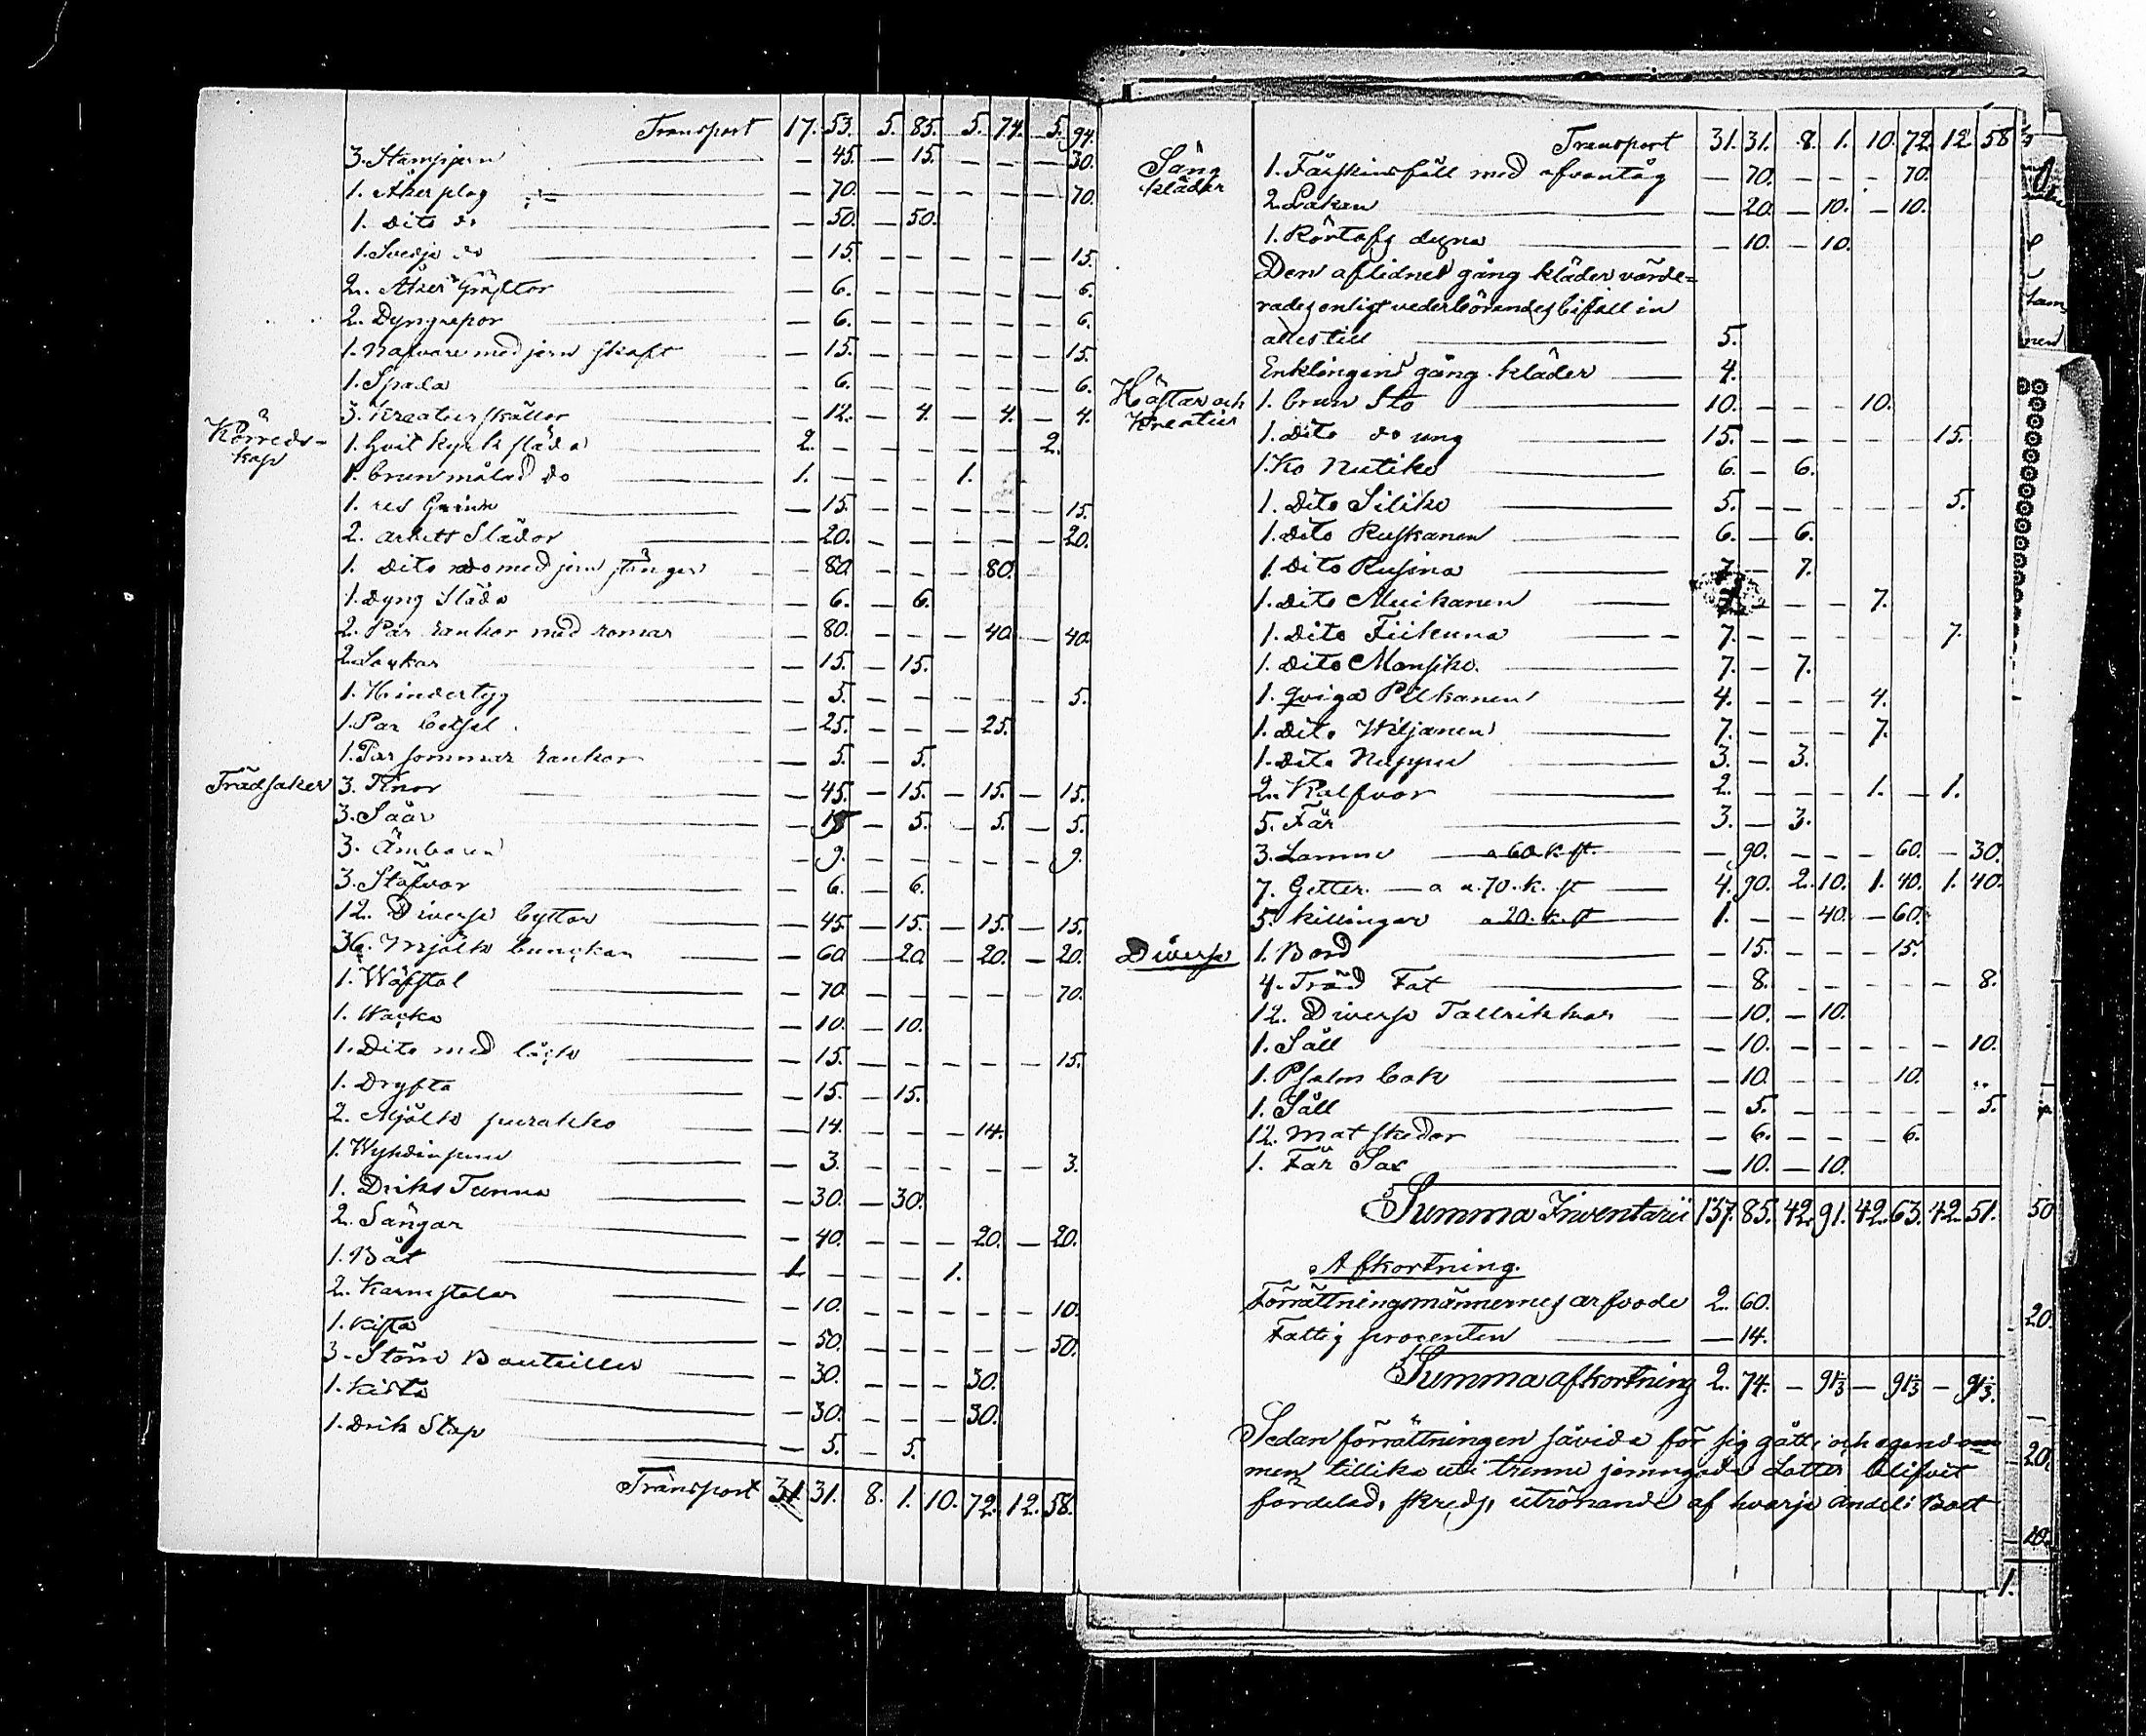 Transport 17. 53. 5. 85. 5. 74. 5. 94.
3. Stampjern — 45. — 15. — — — 30.
1. Åkerplog — 70. — — — — — 70.
1. Dito do — 50. — 50.
1. Svedje do — 15. — — — — — 15.
2. Åker Gräftor — 6. — — — — — 6.
2. Dyngrepor — 6. — — — — — 6.
1. Nafvare med jern skaft — 15. — — — — — 15.
1. Spada — 6. — — — — — 6.
3. Kreaturskällor — 12. — 4. — 4. — 4.
Körreds-
kap
1. hvit kyrk släda 2. — — — — — 2.
1. brun målad do 1. — — — 1.
1. res — 15. — — — — — 15.
2. arbets Slädor — 20. — — — — — 20.
1. Dito do med jern stänger — 80. — — — 80.
1. Dyng Släda — 6. — 6.
2. Par rankor med romar — 80. — — — 40. — 40.
2. Lockar — 15. — 15.
1. Hindertyg — 5. — — — — — 5.
1. Par betsel — 25. — — — 25.
1. Par sommar rankor — 5. — 5.
Trädsaker
3. Tinor — 45. — 15. — 15. — 15.
3. Såår — 15 — 5. — 5. — 5.
3. Ämbaren — 9. — — — — — 9.
3. Stäfvor — 6. — 6.
12. Diverse byttor — 45. — 15. — 15. — 15.
36. Mjölk bunckar — 60 — 20. — 20. — 20.
1. Wäfstol — 70. — — — — — 70.
1. Wacka — 10. — 10.
1. Dito med låck — 15. — — — — — 15.
1. Dryfta — 15. — 15.
2. Mjölk purakko — 14. — — — 14.
1. Wyhdinpuu — 3. — — — — — 3.
1. Driks Tunna — 30. — 30.
2. Sängar — 40. — — — 20. — 20.
1. Båt 1. — — — 1.
2. Karmstolar — 10. — — — — — 10.
1. kista — 50. — — — — — 50.
3. Större Bouteiller — 30. — — — 30.
1. kista — 30. — — — 30.
1. Drik Stop — 5. — 5.
Transport 31. 31. 8. 1. 10. 72. 12. 58.
Transport 31. 31. 8. 1. 10. 72. 12. 58
Säng
kläder
1. Fårskinsfäll med afvantåg — 70. — — — 70.
2. Lakan — 20. — 10. — 10.
1. Rörtafs dyna — 10. — 10.
Den aflidnes gång kläder värde-
rades enligt vederbörandes bifall in
alles till 5.
Enklingens gång kläder 4.
Hästar och
Kreatur
1. brun Sto 10. — — — 10.
1. Dito do ung 15. — — — — — 15.
1. Ko Nutiko 6. — 6.
1. Dito Siliko 5. — — — — — 5.
1. Dito Ruskanen 6. — 6.
1. Dito Rusina 7. — 7.
1. Dito Muikanen 7. — — — 7.
1. Dito Fiikuna 7. — — — — — 7.
1. Dito Mansiko 7. — 7.
1. qviga Pilkanen 4. — — — 4.
1. Dito Wiljanen 7. — — — 7.
1. Dito Nuppu 3. — 3.
2. Kalfvar 2. — — — 1. — 1.
5. Får 3. — 3.
3. Lamm a 60. k. st. — 90. — — — 60. — 30.
7. Getter a a. 70. k. st 4. 90. 2. 10. 1. 40. 1. 40.
5. killingar a 20. k. st 1. — — 40. — 60.
Diverse
1. Bord — 15. — — — 15.
4. Träd Fat — 8. — — — — — 8.
12. Diverse Tallrikkar — 10. — 10.
1. Såll — 10. — — — — — 10.
1. Psalm bok — 10. — — — 10.
1. Såll — 5. — — — — — 5.
12. mat skedar — 6. — — — 6.
1. Får Sax — 10. — 10.
Summa Inventarii 137. 85. 42. 91. 42. 63. 42. 51.
Afkortning.
Förrättningsmännernes arfvode 2. 60.
Fattig procenten — 14.
Summa afkortning 2. 74. — 91⅓ — 91⅓ — 91⅓.
Sedan förrättningen såvida för sig gått, och egendom
men tillika uti trenne jemngoda Lotter blifvit
fördelad, skreds, utrönande af hvarje andel i Boet